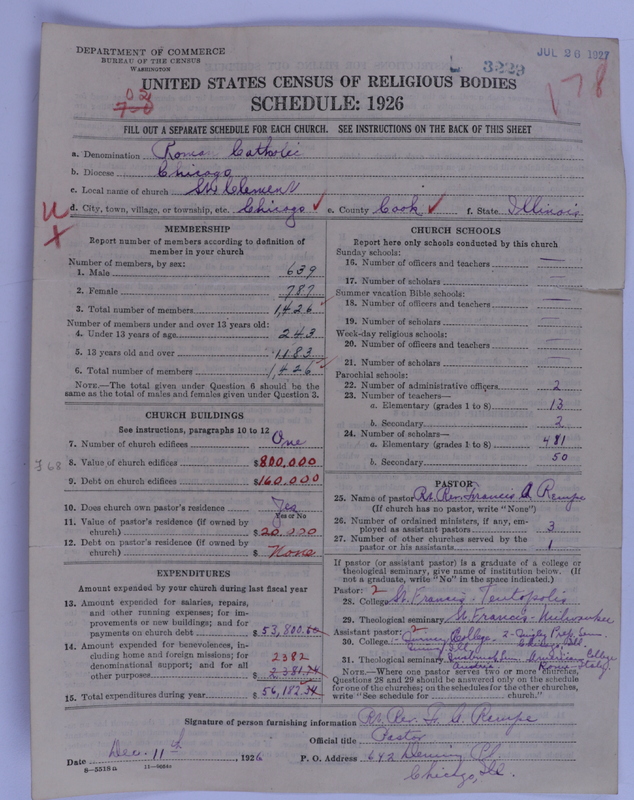 DEPARTMENT OF COMMERCE
BUREAU OF THE CENSUS
WASHINGTON
JUL 26 1927
3229
178
UNITED STATES CENSUS OF RELIGIOUS BODIES
SCHEDULE: 1926
FILL OUT A SEPARATE SCHEDULE FOR EACH CHURCH. SEE INSTRUCTIONS ON THE BACK OF THIS SHEET
a. Denomination Roman Catholic
b. Diocese Chicago
c. Local name of church St Clement
d. City, town, village, or township, etc. Chicago ✓ e. County Cook ✓ f. State Illinois
MEMBERSHIP
Report number of members according to definition of
member in your church
Number of members, by sex:
1. Male 639
2. Female 787
3. Total number of members 1,426
Number of members under and over 13 years old:
4. Under 13 years of age 243
5. 13 years old and over 1183
6. Total number of members 1,426
NOTE.—The total given under Question 6 should be the
same as the total of males and females given under Question 3.
CHURCH BUILDINGS
See instructions, paragraphs 10 to 12
7. Number of church edifices One
8. Value of church edifices $800.000
9. Debt on church edifices $160.000
10. Does church own pastor's residence Yes
Yes or No
11. Value of pastor's residence (if owned by
church) $20.000
12. Debt on pastor's residence (if owned by
church) $ None
EXPENDITURES
Amount expended by your church during last fiscal year
13. Amount expended for salaries, repairs,
and other running expenses; for im-
provements or new buildings; and for
payments on church debt $53,800.
14. Amount expended for benevolences, in-
cluding home and foreign missions; for
denominational support; and for all
other purposes 2382
2,381.74
15. Total expenditures during year $56,182.
CHURCH SCHOOLS
Report here only schools conducted by this church
Sunday schools:
16. Number of officers and teachers —
17. Number of scholars —
Summer vacation Bible schools:
18. Number of officers and teachers —
19. Number of scholars —
Week-day religious schools:
20. Number of officers and teachers —
21. Number of scholars —
Parochial schools:
22. Number of administrative officers 2
23. Number of teachers—
a. Elementary (grades 1 to 8) 13
b. Secondary 2
24. Number of scholars—
a. Elementary (grades 1 to 8) 481
b. Secondary 50
PASTOR
25. Name of pastor Rt. Rev. Francis A Rempe
(If church has no pastor, write "None")
26. Number of ordained ministers, if any, em-
ployed as assistant pastors 3
27. Number of other churches served by the
pastor or his assistants 1
If pastor (or assistant pastor) is a graduate of a college or
theological seminary, give name of institution below. (If
not a graduate, write "No" in the space indicated.)
Pastor: 2
28. College St. Francis - Teutopolis
29. Theological seminary St. Francis - Milwaukee
Assistant pastor: 2
30. College 1- Quincy College 2- Quigley Prep. Sem
Quincy Ill. Chicago Ill.
31. Theological seminary Innsbruck American College
Austria Rome Italy
NOTE.—Where one pastor serves two or more churches,
Questions 28 and 29 should be answered only on the schedule
for one of the churches; on the schedules for the other churches,
write "See schedule for church."
Signature of person furnishing information Rt. Rev. F. A. Rempe
Official title Pastor
Date Dec. 11, 1926 P. O. Address 642 Deming Pl.
8—5518a
Chicago, Ill.